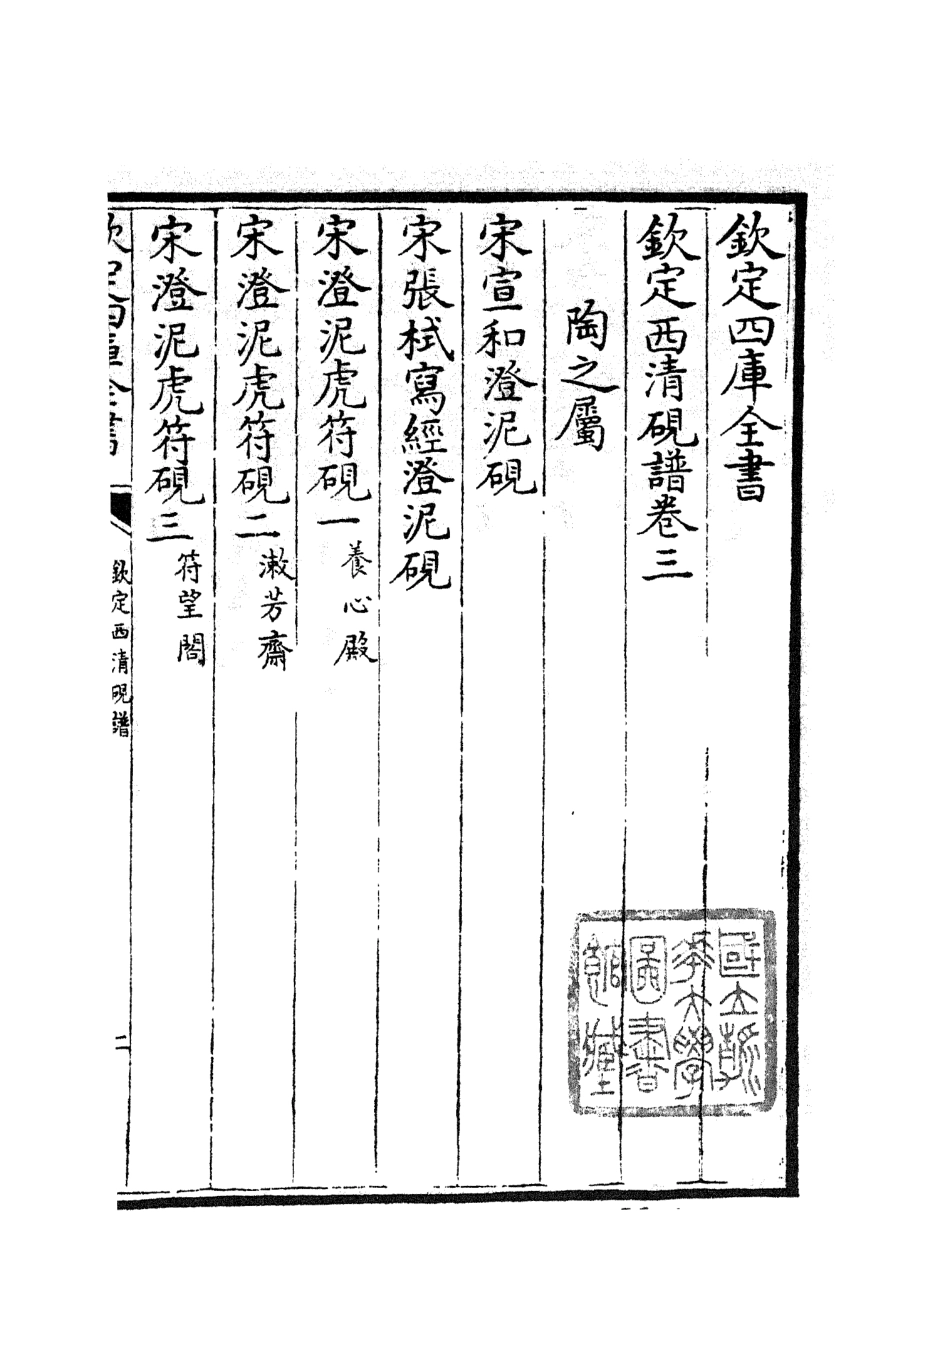 欽定四庫全書
欽定西清硯譜卷三
陶之屬
宋宣和澄泥硯
宋張栻寫經澄泥硯
宋澄泥虎符硯一 養心殿
宋澄泥虎符硯二 漱芳齋
宋澄泥虎符硯三 符望閣
欽定四庫全書
欽定西清硯譜
二
國立清華大學圖書館藏